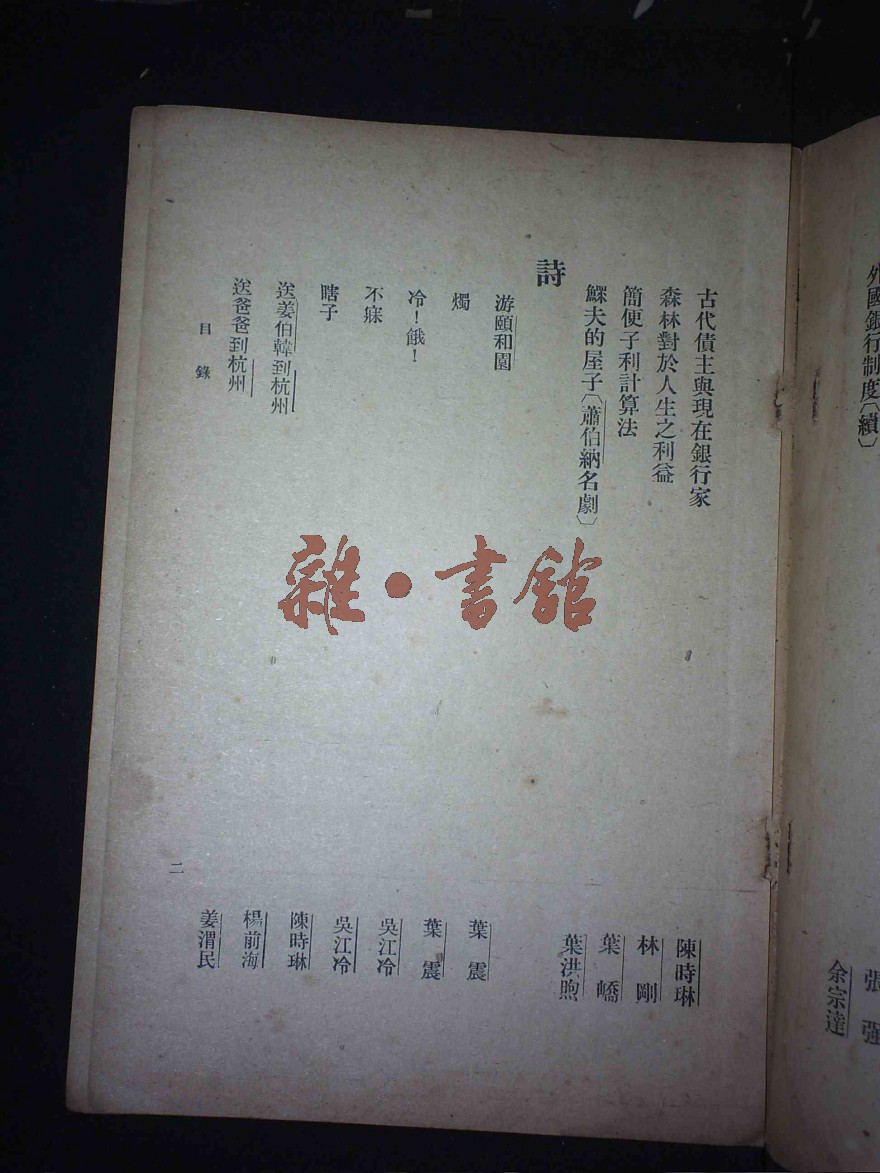 外國銀行制度〔續〕
張強
余宗達
古代債主與現在銀行家 陳時琳
森林對於人生之利益 林剛
簡便子利計算法 葉嶠
鰥夫的屋子〔蕭伯納名劇〕 葉洪煦
詩
游頤和園 葉震
燭 葉震
冷！餓！ 吳江冷
不寐 吳江冷
瞎子 陳時琳
送姜伯韓到杭州 楊前海
送爸爸到杭州 姜渭民
目錄
二
雜·書館